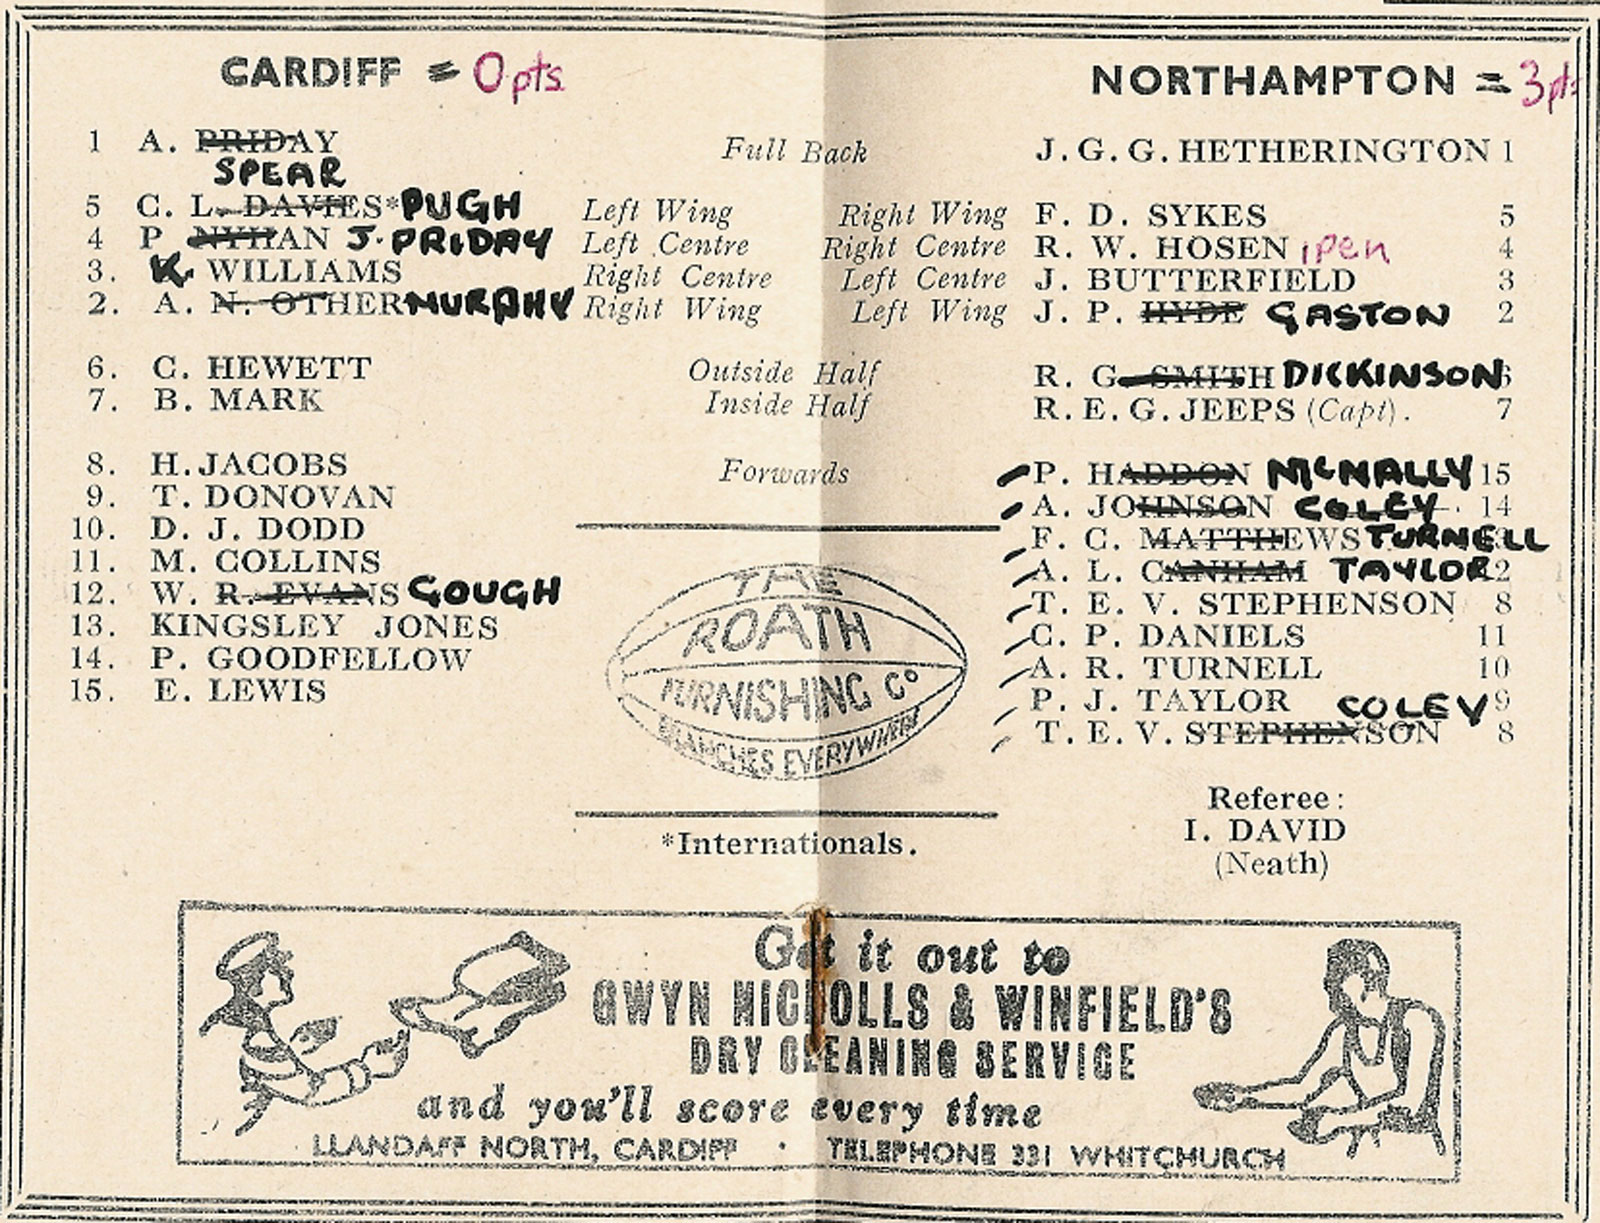 CARDIFF = 0 pts
NORTHAMPTON = 3 pts
1 A. PRIDAY Full Back J. G. G. HETHERINGTON 1
SPEAR
5 C. L. DAVIES* PUGH Left Wing Right Wing F. D. SYKES 5
4 P NYHAN J. PRIDAY Left Centre Right Centre R. W. HOSEN 1 pen 4
3. K. WILLIAMS Right Centre Left Centre J. BUTTERFIELD 3
2. A. N. OTHER MURPHY Right Wing Left Wing J. P. HYDE GASTON 2
6. C. HEWETT Outside Half R. G. SMITH DICKINSON 6
7. B. MARK Inside Half R. E. G. JEEPS (Capt). 7
8. H. JACOBS Forwards P. HADDON MCNALLY 15
9. T. DONOVAN A. JOHNSON COLEY 14
10. D. J. DODD F. C. MATTHEWS TURNELL
11. M. COLLINS A. L. CANHAM TAYLOR 12
12. W. R. EVANS GOUGH T. E. V. STEPHENSON 8
13. KINGSLEY JONES C. P. DANIELS 11
14. P. GOODFELLOW A. R. TURNELL 10
15. E. LEWIS P. J. TAYLOR 9
COLEY
T. E. V. STEPHENSON 8
THE
ROATH
FURNISHING Co
BRANCHES EVERYWHERE
*Internationals.
Referee:
I. DAVID
(Neath)
Get it out to
GWYN NICHOLLS & WINFIELD'S
DRY CLEANING SERVICE
and you'll score every time
LLANDAFF NORTH, CARDIFF · TELEPHONE 331 WHITCHURCH